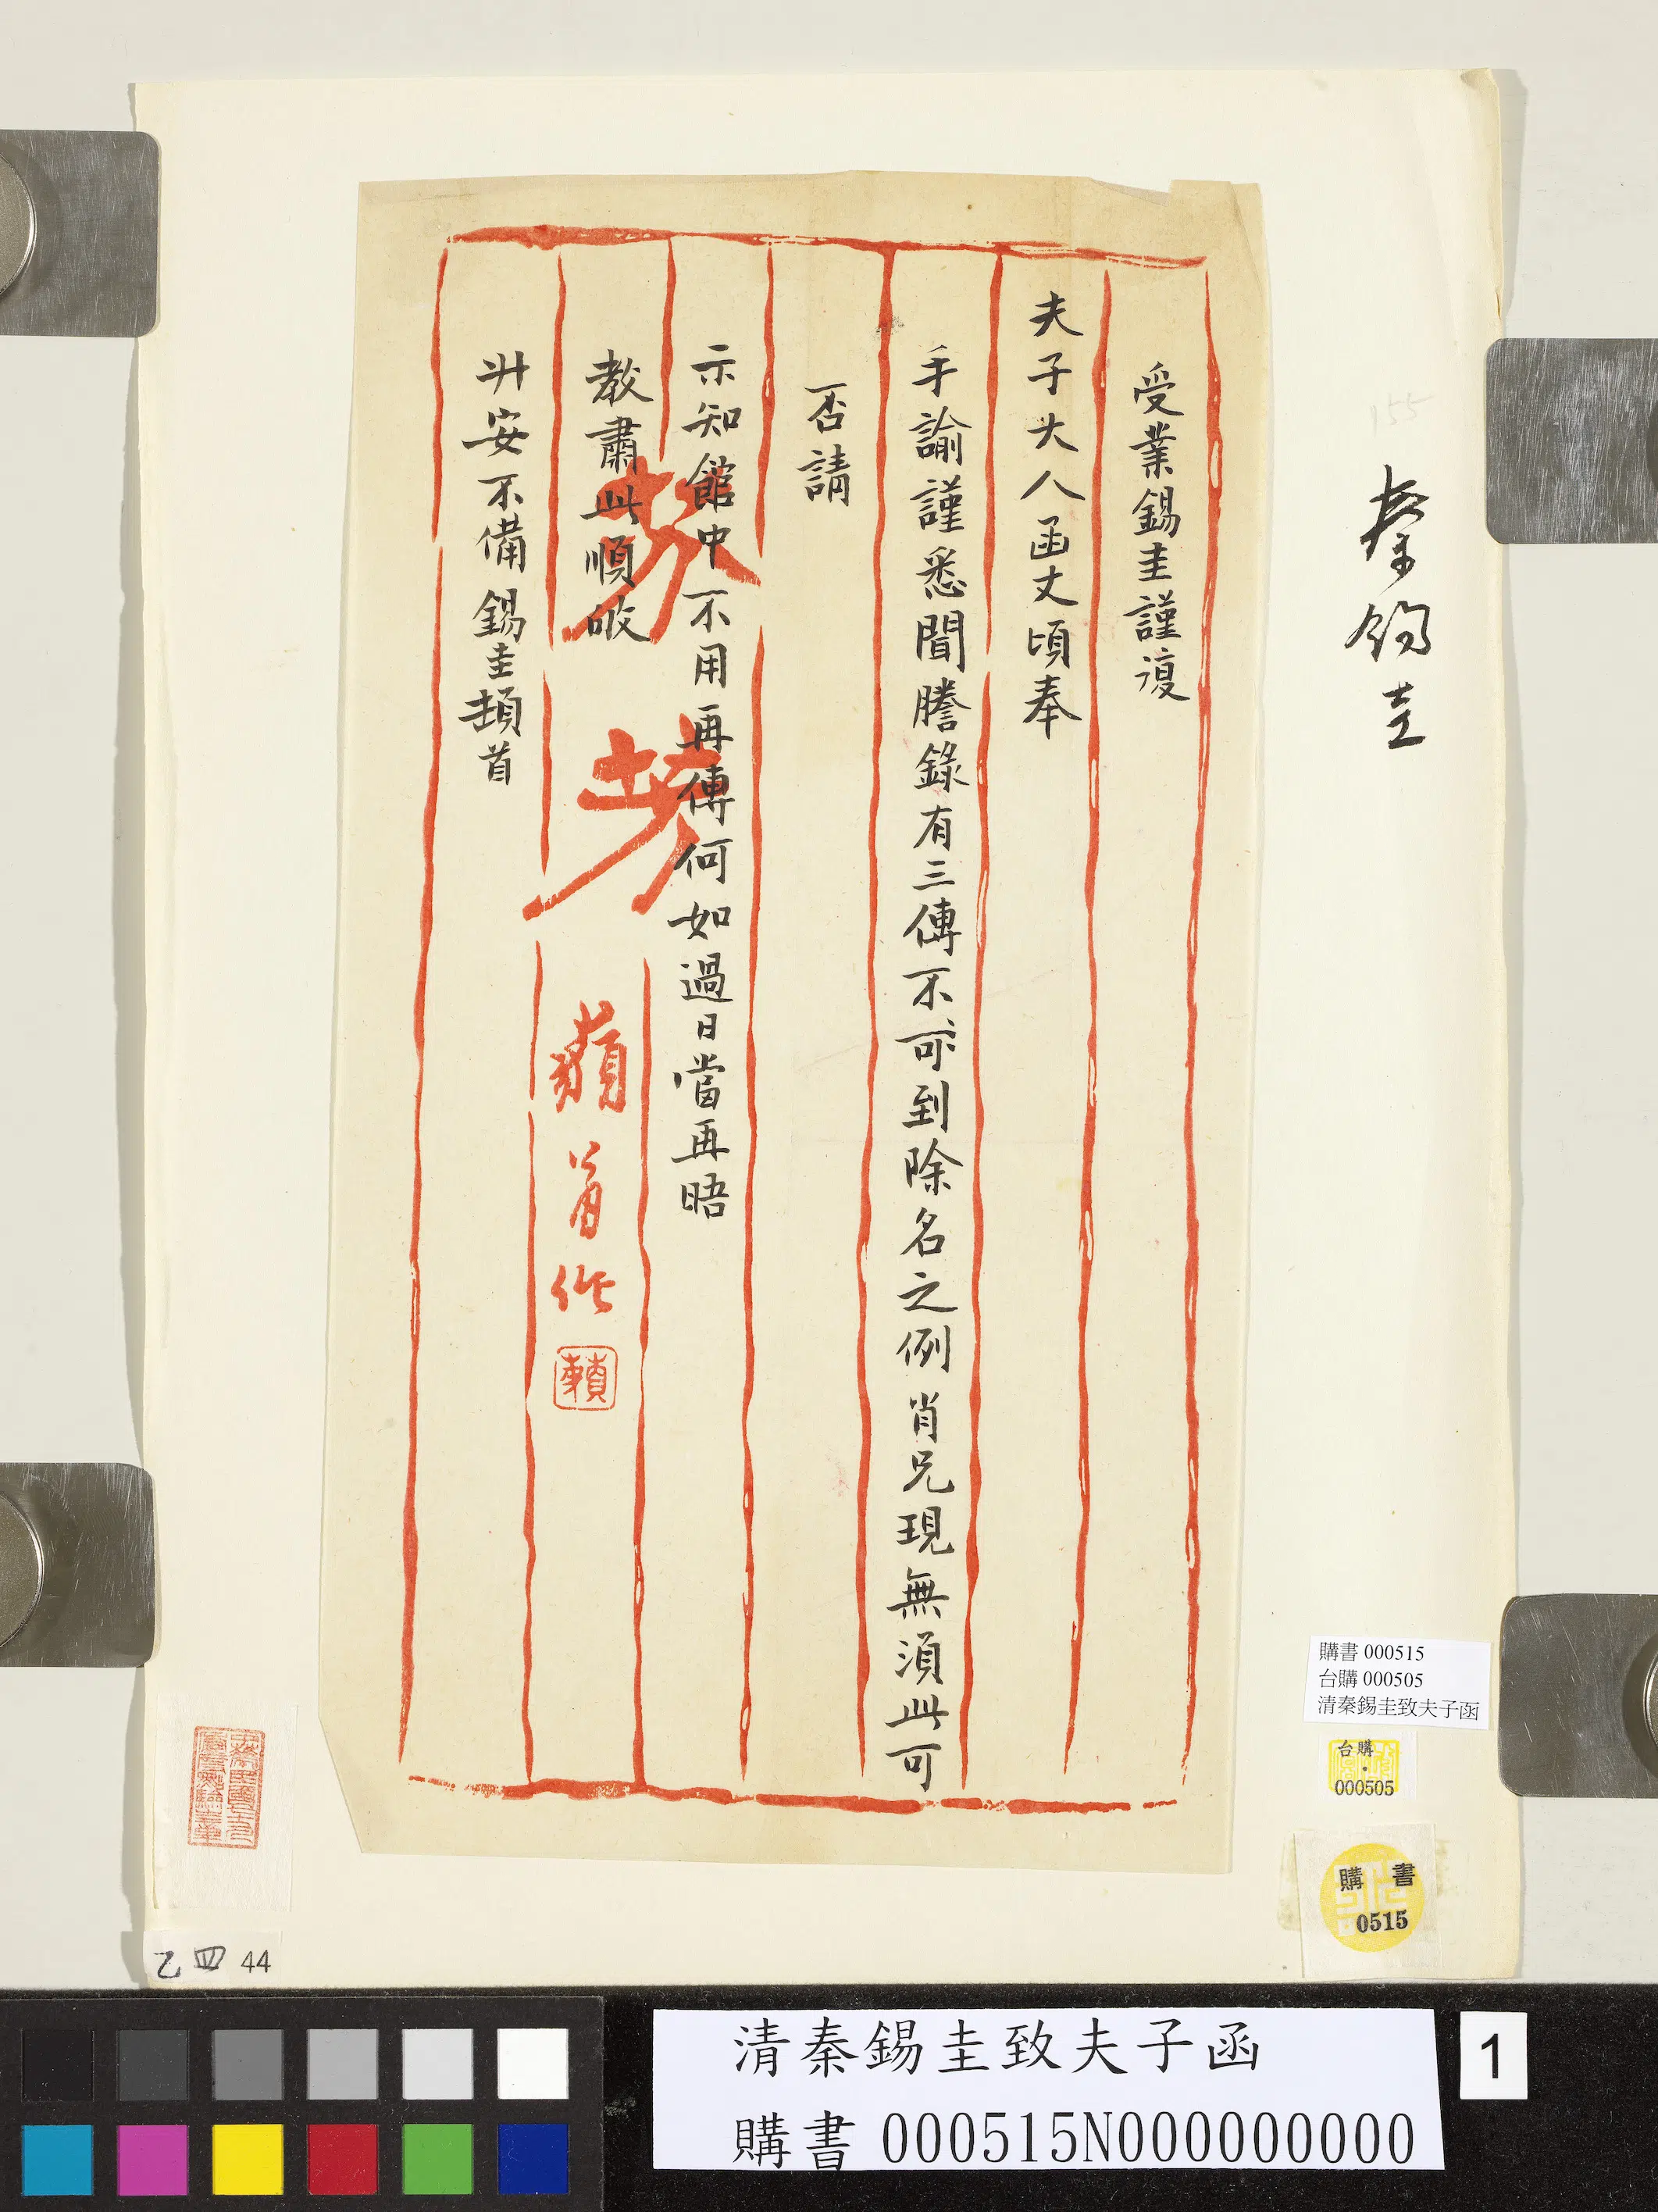 受業錫圭謹復
夫子大人函丈頃奉
手諭謹悉聞謄錄有三傳不到除名之例肖兄現無須此可
否請
示知館中不用再傳何如過日當再晤
教肅此順敂
升安不備錫圭頓首
作
秦錫圭
155
購書 000515
台購 000505
清秦錫圭致夫子函
台購
000505
購書
0515
乙四 44
清秦錫圭致夫子函
購書 000515N000000000
1